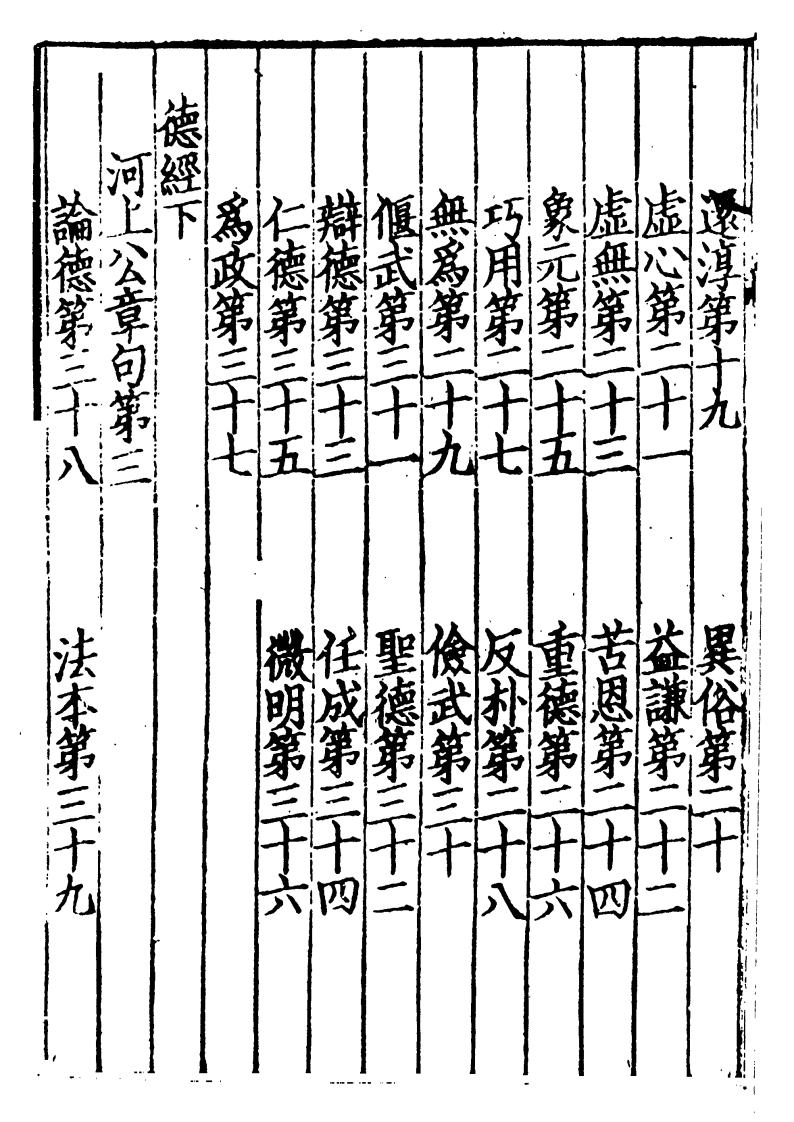 還淳第十九　異俗第二十
虛心第二十一　益謙第二十二
虛無第二十三　苦恩第二十四
象元第二十五　重德第二十六
巧用第二十七　反朴第二十八
無爲第二十九　儉武第三十
偃武第三十一　聖德第三十二
辯德第三十三　任成第三十四
仁德第三十五　微明第三十六
爲政第三十七
德經下
河上公章句第三
論德第三十八　法本第三十九